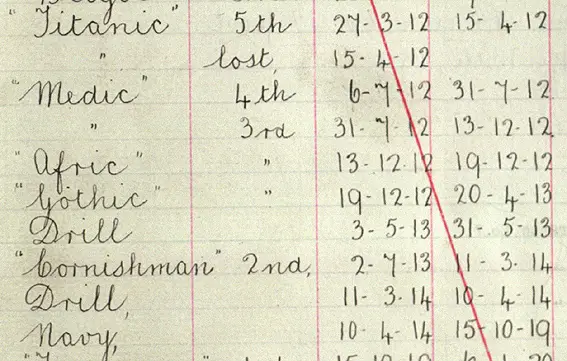 "Titanic" 5th 27-3-12 15-4-12
" lost, 15-4-12
"Medic" 4th 6-7-12 31-7-12
" 3rd 31-7-12 13-12-12
"Afric" " 13-12-12 19-12-12
"Gothic" " 19-12-12 20-4-13
Drill 3-5-13 31-5-13
"Cornishman" 2nd, 2-7-13 11-3-14
Drill, 11-3-14 10-4-14
Navy, 10-4-14 15-10-19